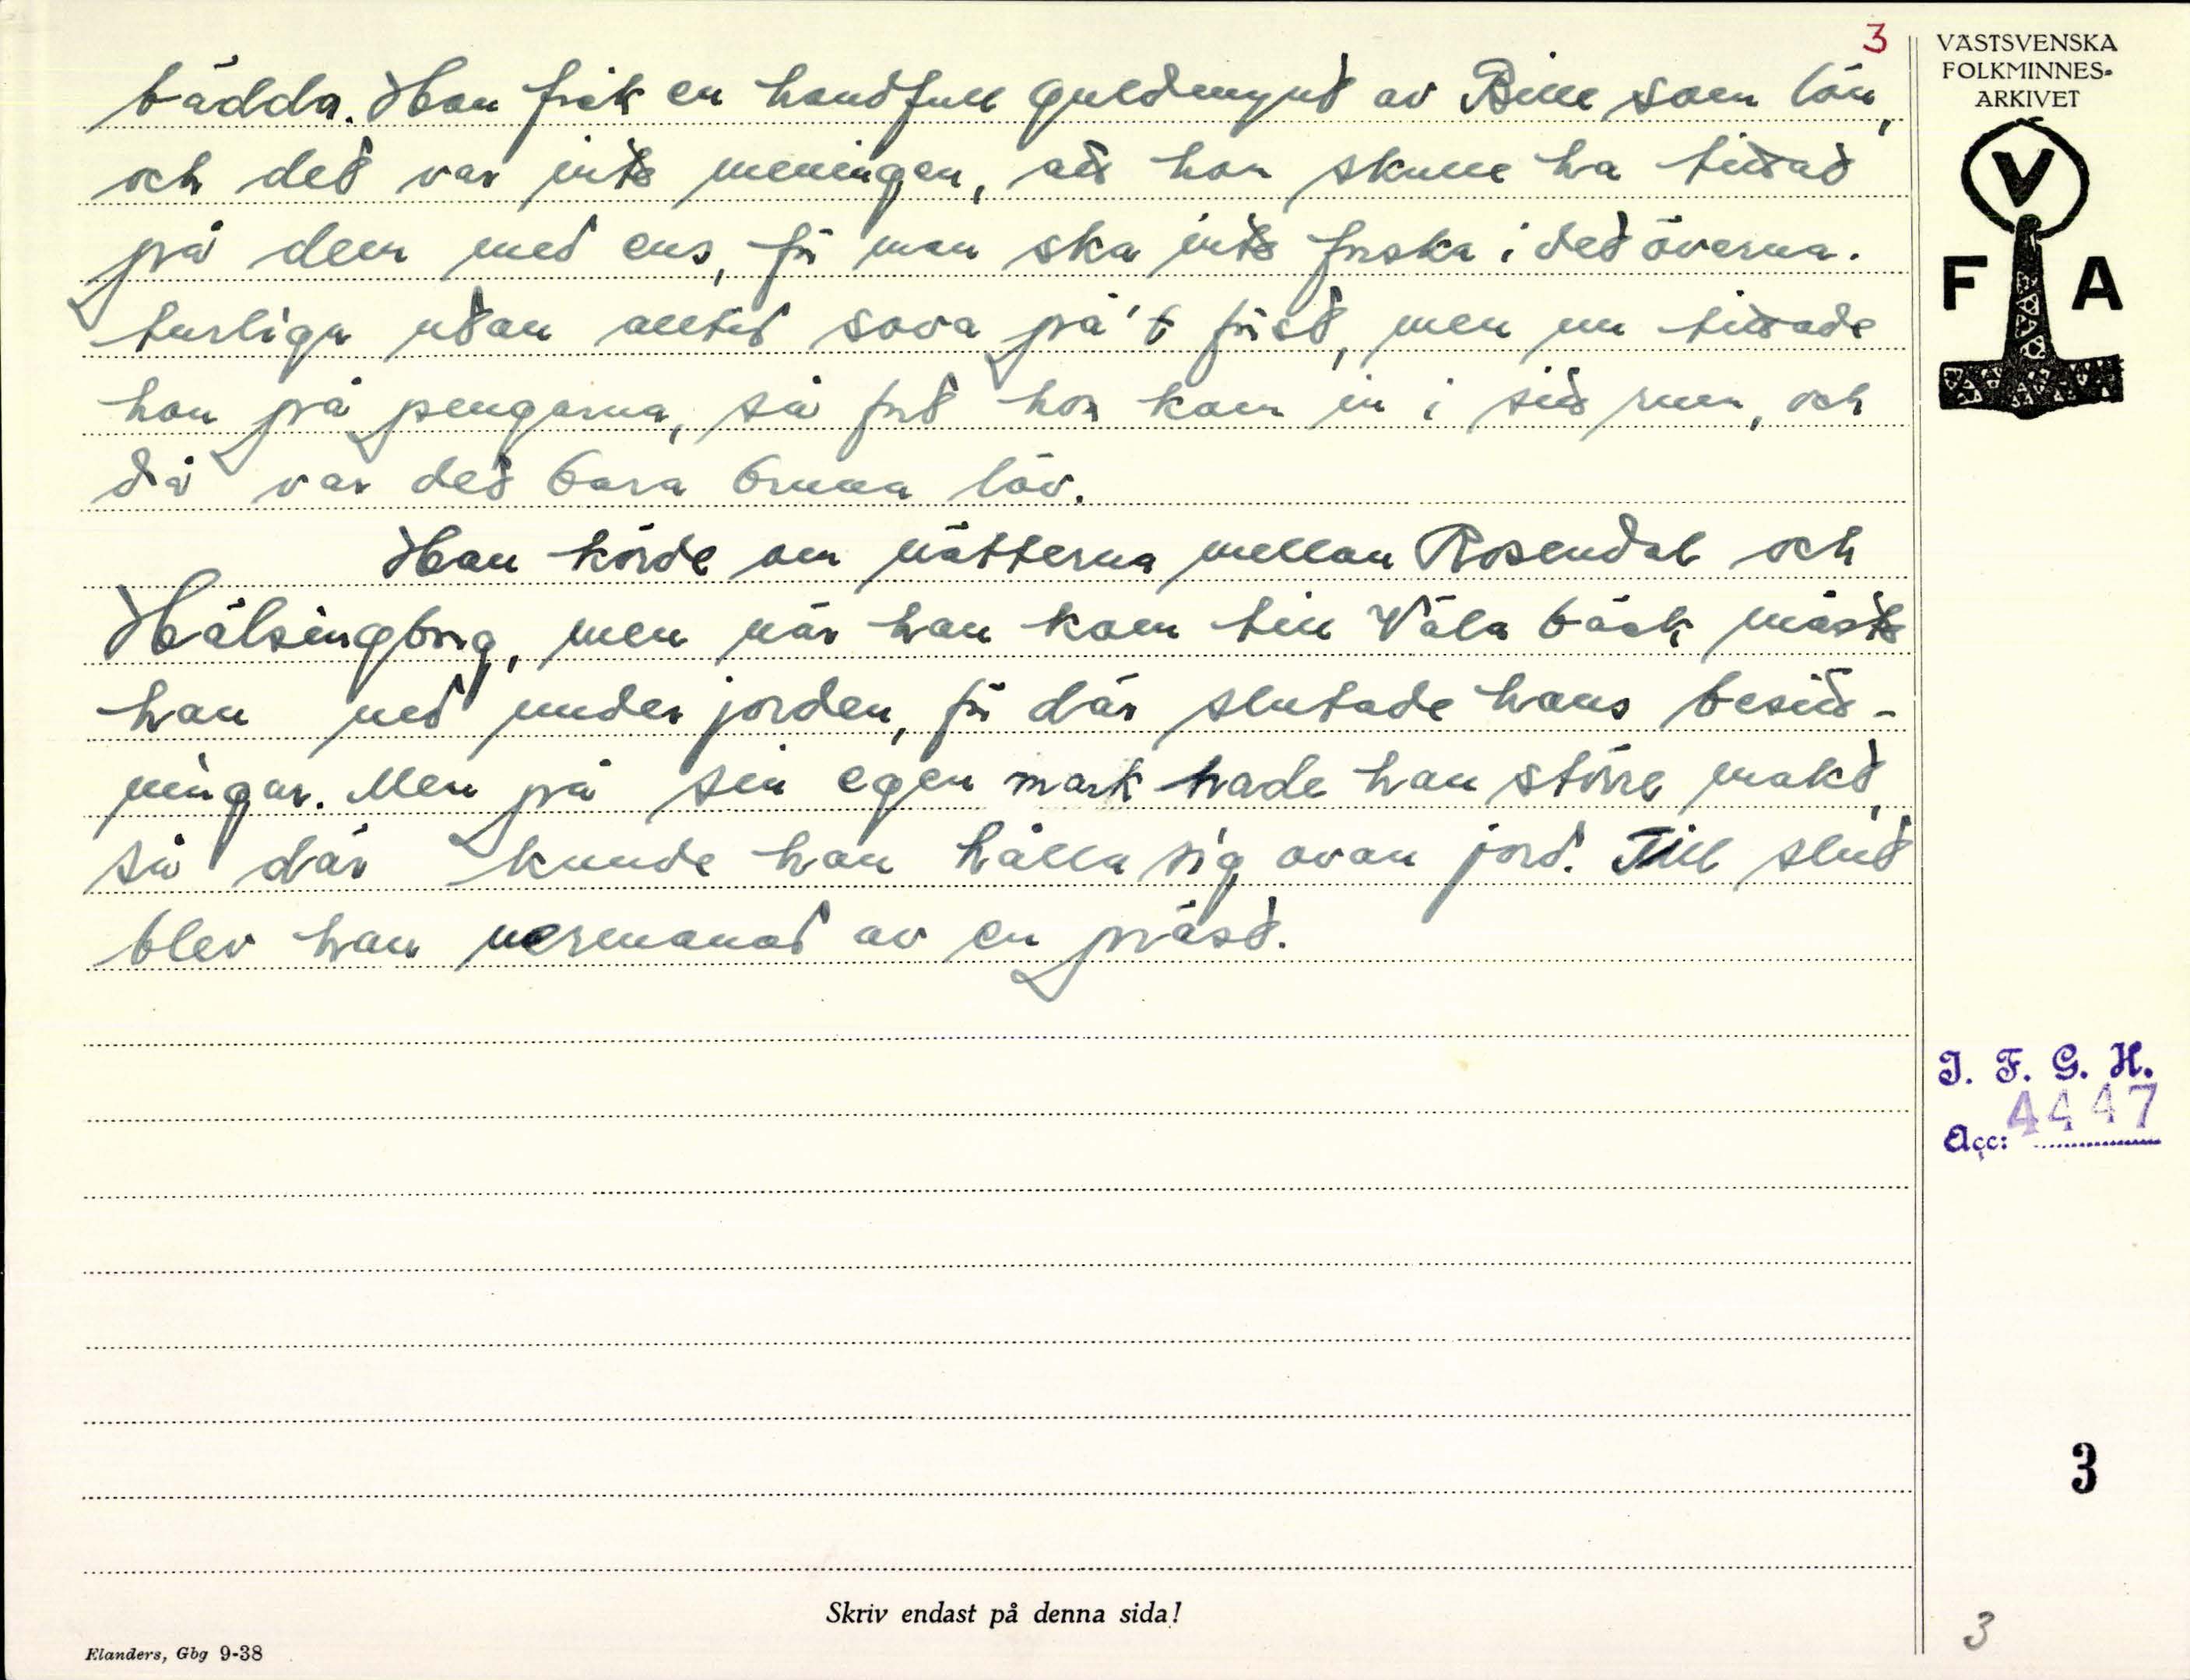 3
bädda. Hon fick en handfull guldmynt av Bille som lön,
och det var inte meningen, att hon skulle ha tittat
på dem med ens, för man ska inte forska i det överna-
turliga utan alltid sova på't först, men nu tittade
hon på pengarna, så fort hon kom in i sitt rum, och
då var det bara bruna löv.
Han körde om nätterna mellan Rosendal och
Hälsingborg, men när han kom till Väla bäck måste
han ned under jorden, för där slutade hans besitt-
ningar. Men på sin egen mark hade han större makt,
så där kunde han hålla sig ovan jord. Till slut
blev han nermanad av en präst.
Skriv endast på denna sida!
Elanders, Gbg 9-38
VÄSTSVENSKA
FOLKMINNES-
ARKIVET
V
F A
I. F. G. H.
Acc: 4447
3
3